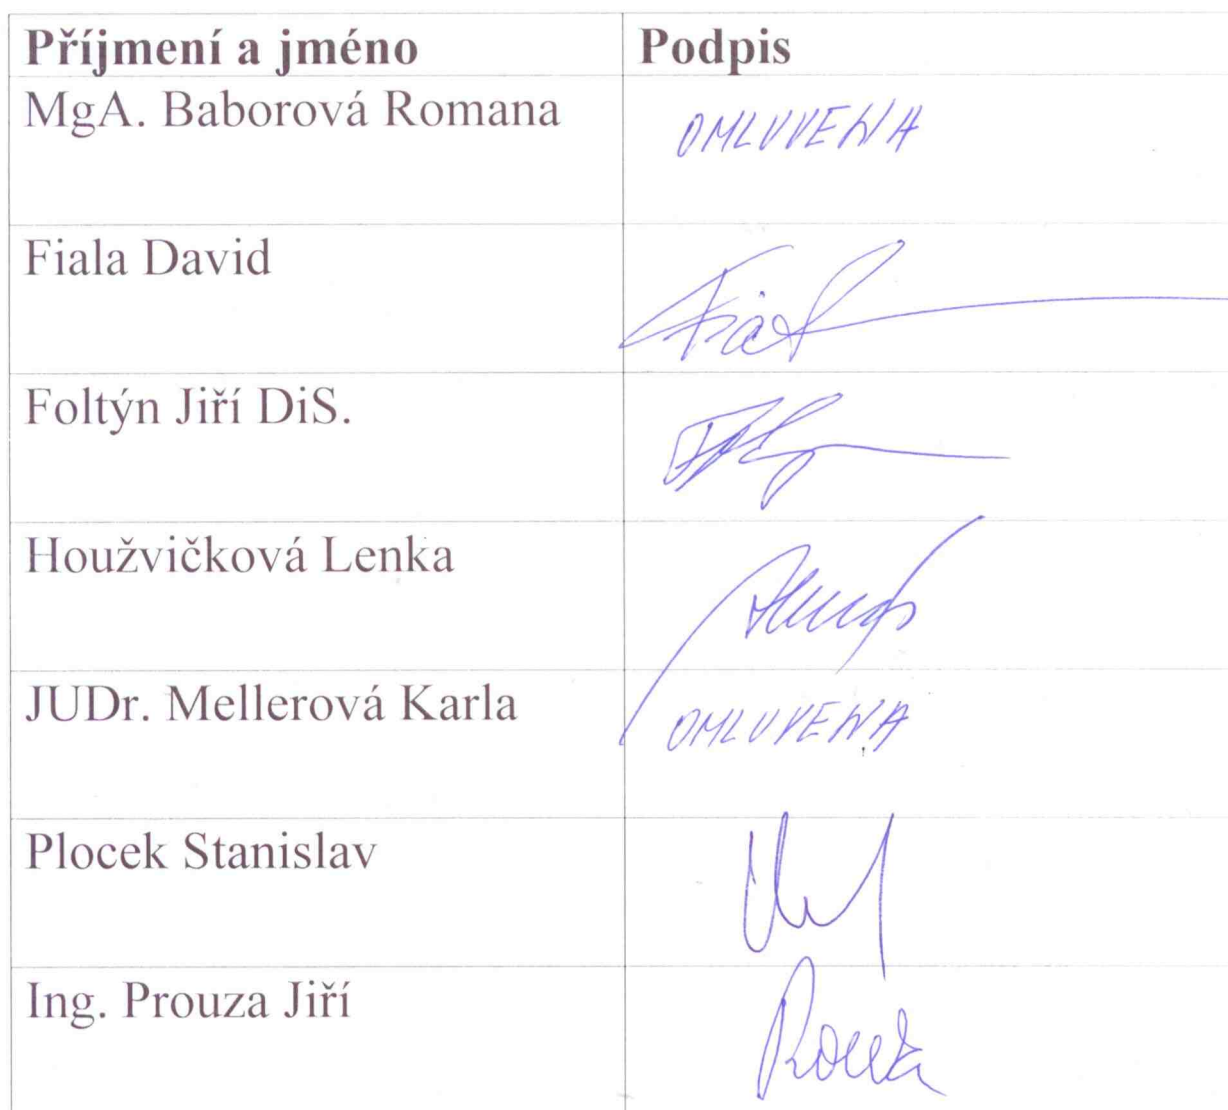 Příjmení a jméno Podpis
MgA. Baborová Romana OMLUVENA
Fiala David
Foltýn Jiří DiS.
Houžvičková Lenka
JUDr. Mellerová Karla OMLUVENA
Plocek Stanislav
Ing. Prouza Jiří